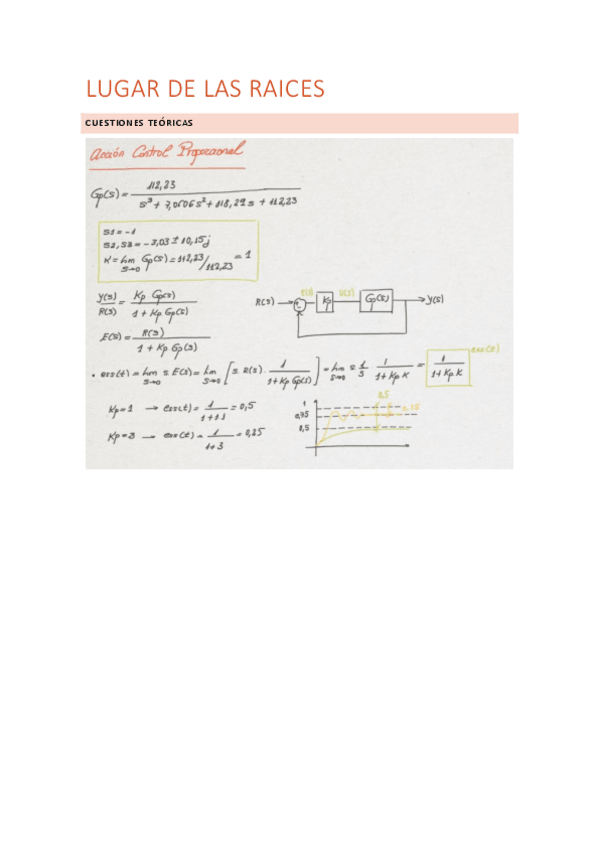 LUGAR DE LAS RAICES
CUESTIONES TEÓRICAS
Acción Control Proporcional
Gp(s) = 112,23 / s³ + 7,0606s² + 118,29s + 112,23
S1 = -1
S2, S3 = -3,03 ± 10,15j
K = lim s→0 Gp(s) = 112,23/112,23 = 1
Y(s)/R(s) = Kp Gp(s) / 1 + Kp Gp(s)
R(s) Kp U(s) Gp(s) Y(s)
E(s) = R(s) / 1 + Kp Gp(s)
• ess(t) = lim s→0 s.E(s) = lim s→0 [s.R(s). 1 / 1+Kp Gp(s)] = lim s→0 s 1/s 1 / 1+Kp K = 1 / 1+Kp K ess(t)
Kp=1 → ess(t) = 1 / 1+1.1 = 0,5
Kp=3 → ess(t) = 1 / 1+3 = 0,25
1
0,75
0,5
0,5
0,25